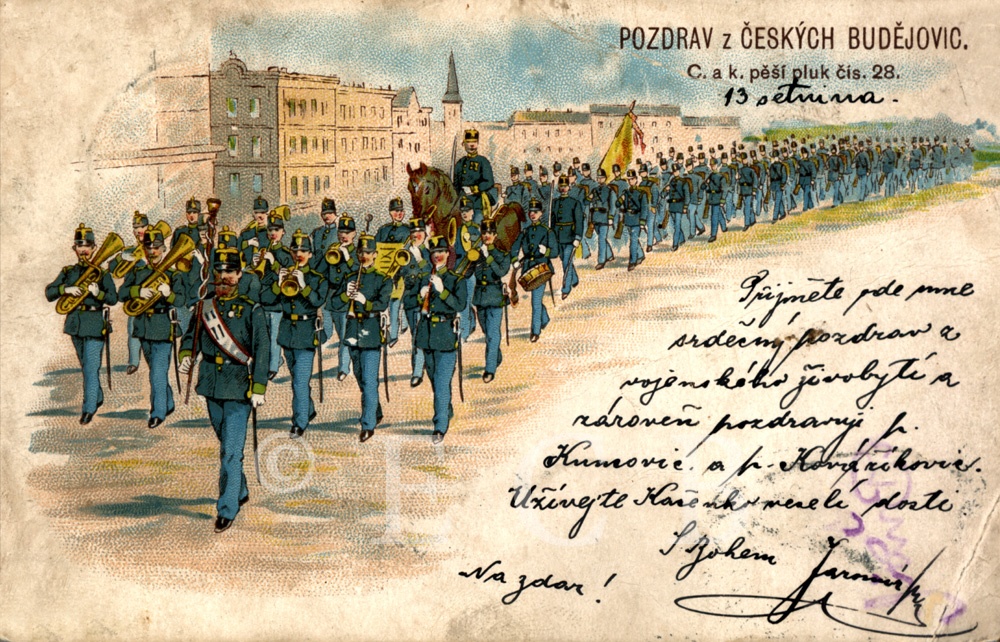 POZDRAV z ČESKÝCH BUDĚJOVIC.
C. a k. pěší pluk čís. 28.
13 setnina.
Přijměte ode mne
srdečný pozdrav z
vojenského živobytí a
zároveň pozdravuji p.
Kuncovic. a p. Kovaříkovic.
Užívejte veselí dosti
S Bohem Jaromír
Na zdar!
© F C